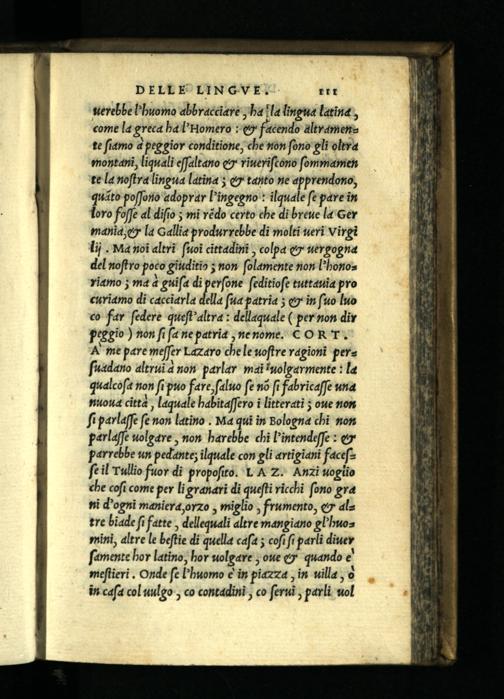 DELLE LINGVE. 111
uerebbe l'huomo abbracciare, ha la lingua latina,
come la greca ha l'Homero: & facendo altramen-
te siamo à peggior conditione, che non sono gli oltra
montani, liquali essaltano & riueriscono sommamen
te la nostra lingua latina; & tanto ne apprendono,
quāto possono adoprar l'ingegno: ilquale se pare in
loro fosse al disio; mi rēdo certo che di breue la Ger
mania, & la Gallia produrrebbe di molti ueri Virgi
lij. Ma noi altri suoi cittadini, colpa & uergogna
del nostro poco giuditio; non solamente non l'hono-
riamo; ma à guisa di persone seditiose tuttauia pro
curiamo di cacciarla della sua patria; & in suo luo
co far sedere quest'altra: dellaquale (per non dir
peggio) non si sa ne patria, ne nome. CORT.
A' me pare messer Lazaro che le uostre ragioni per-
suadano altrui à non parlar mai uolgarmente: la
qualcosa non si puo fare, saluo se nō si fabricasse una
nuoua città, laquale habitassero i litterati; oue non
si parlasse se non latino. Ma qui in Bologna chi non
parlasse uolgare, non harebbe chi l'intendesse: &
parrebbe un pedante; ilquale con gli artigiani faces-
se il Tullio fuor di proposito. LAZ. Anzi uoglio
che cosi come per li granari di questi ricchi sono gra
ni d'ogni maniera, orzo, miglio, frumento, & al-
tre biade si fatte, dellequali altre mangiano gl'huo-
mini, altre le bestie di quella casa; cosi si parli diuer
samente hor latino, hor uolgare, oue & quando è
mestieri. Onde se l'huomo è in piazza, in uilla, ò
in casa col uulgo, co contadini, co serui, parli uol